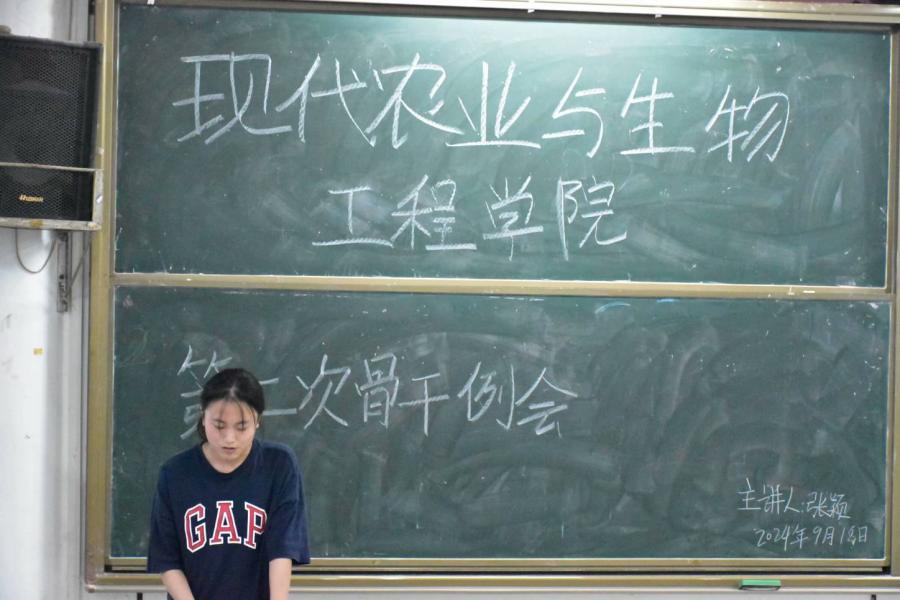 现代农业与生物
工程学院
第二次骨干例会
GAP
主讲人:张颖
2024年9月18日